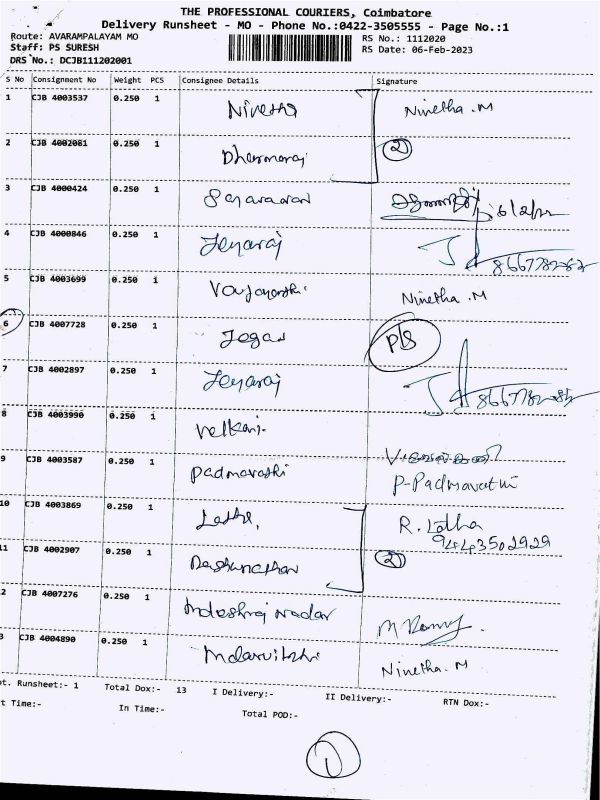 THE PROFESSIONAL COURIERS, Coimbatore
Delivery Runsheet - MO - Phone No.:0422-3505555 - Page No.:1
Route: AVARAMPALAYAM MO
RS No.: 1112020
Staff: PS SURESH
RS Date: 06-Feb-2023
DRS No.: DCJB111202001
S No Consignment No Weight PCS Consignee Details Signature
1 CJB 4003537 0.250 1 Ninetha Ninetha.M
2 CJB 4002081 0.250 1 Dharmaraj 2
3 CJB 4000424 0.250 1
4 CJB 4000846 0.250 1 Jeyaraj
5 CJB 4003699 0.250 1 Ninetha.M
6 CJB 4007728 0.250 1 Jegan P/S
7 CJB 4002897 0.250 1 Jeyaraj
8 CJB 4003990 0.250 1 Velkani
9 CJB 4003587 0.250 1 Padmavathi P-Padmavathi
10 CJB 4003869 0.250 1 Latha, R. Latha
9443502929
11 CJB 4002907 0.250 1 2
2 CJB 4007276 0.250 1 Nadar
3 CJB 4004890 0.250 1 Ninetha.M
ot. Runsheet:- 1 Total Dox:- 13 I Delivery:- II Delivery:- RTN Dox:-
t Time:- In Time:- Total POD:-
1